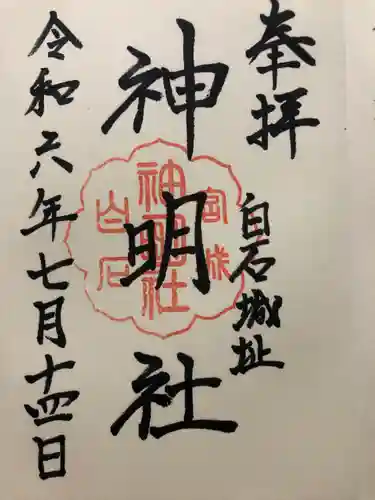 奉拝
白石城址
神明社
宮城
神明社
白石
令和六年七月十四日